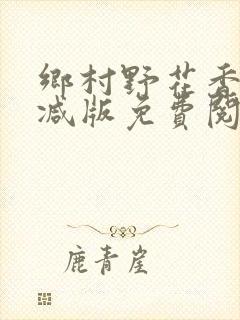 鄉村野花香
减版免費閱
鹿青崖